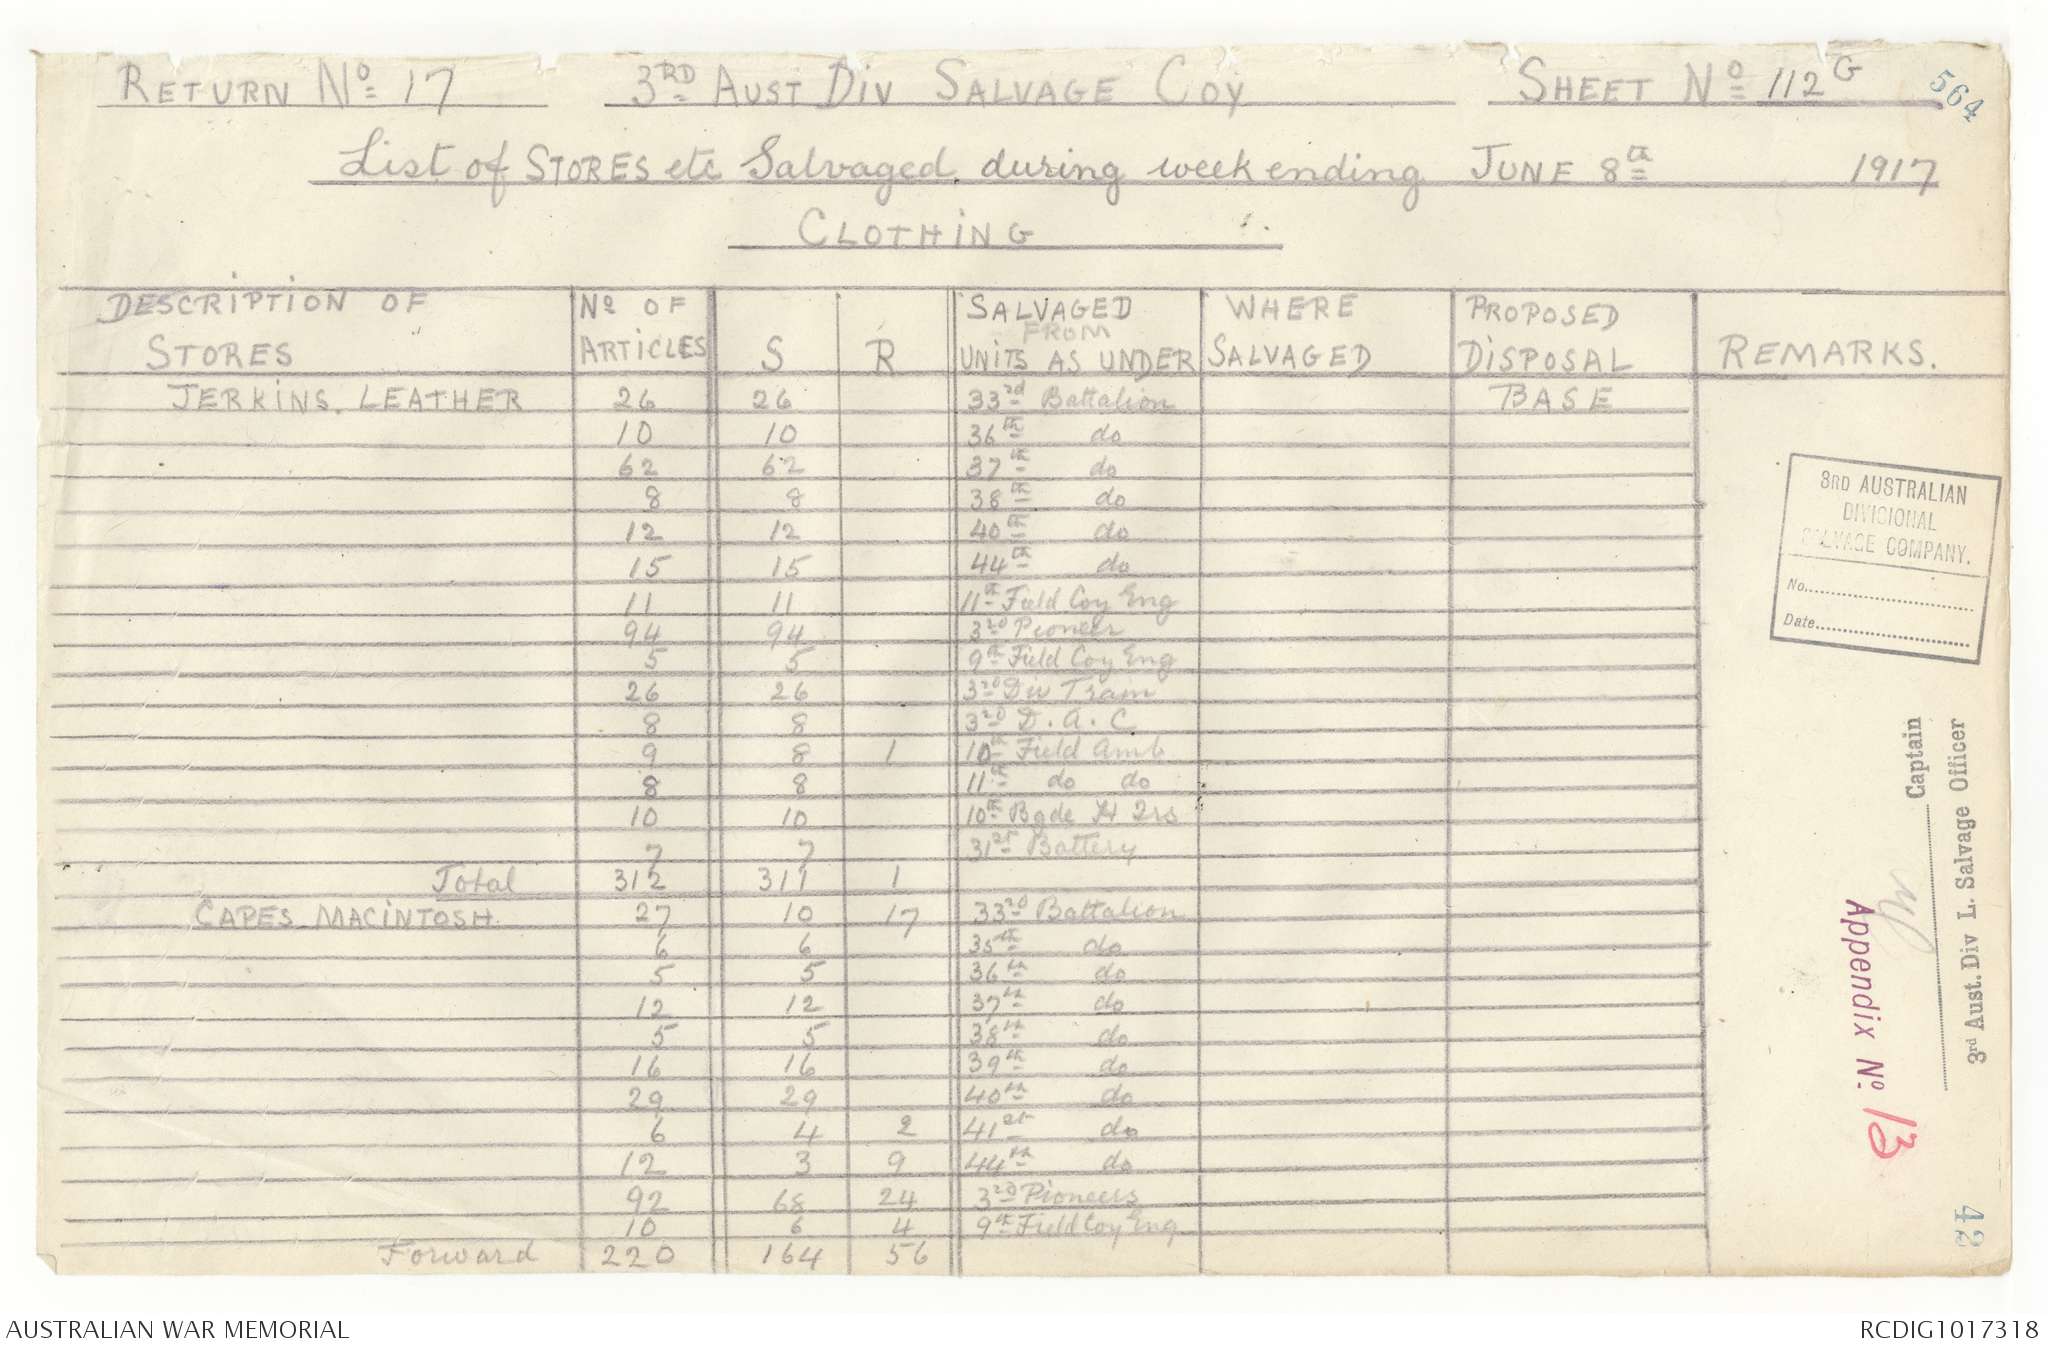 RETURN No 17 3RD AUST DIV SALVAGE COY SHEET No 112G 564
List of STORES etc Salvaged during week ending JUNE 8th 1917
CLOTHING
DESCRIPTION OF STORES No OF ARTICLES S R SALVAGED FROM UNITS AS UNDER WHERE SALVAGED PROPOSED DISPOSAL REMARKS.
JERKINS. LEATHER 26 26 33rd Battalion BASE
10 10 36th do
62 62 37th do
8 8 38th do
12 12 40th do
15 15 44th do
11 11 11th Field Coy Eng
94 94 3rd Pioneer
5 5 9th Field Coy Eng
26 26 3rd Div Train
8 8 3rd D.A.C
9 8 1 10th Field Amb
8 8 11th do do
10 10 10th Bgde H Qrs
7 7 31st Battery
Total 312 311 1
CAPES MACINTOSH. 27 10 17 33rd Battalion
6 6 35th do
5 5 36th do
12 12 37th do
5 5 38th do
16 16 39th do
29 29 40th do
6 4 2 41st do
12 3 9 44th do
92 68 24 3rd Pioneers
10 6 4 9th Field Coy Eng
Forward 220 164 56
3RD AUSTRALIAN
DIVISIONAL
SALVAGE COMPANY.
No.
Date
Captain
3rd Aust. Div L. Salvage Officer
Appendix No. 13
42
AUSTRALIAN WAR MEMORIAL RCDIG1017318